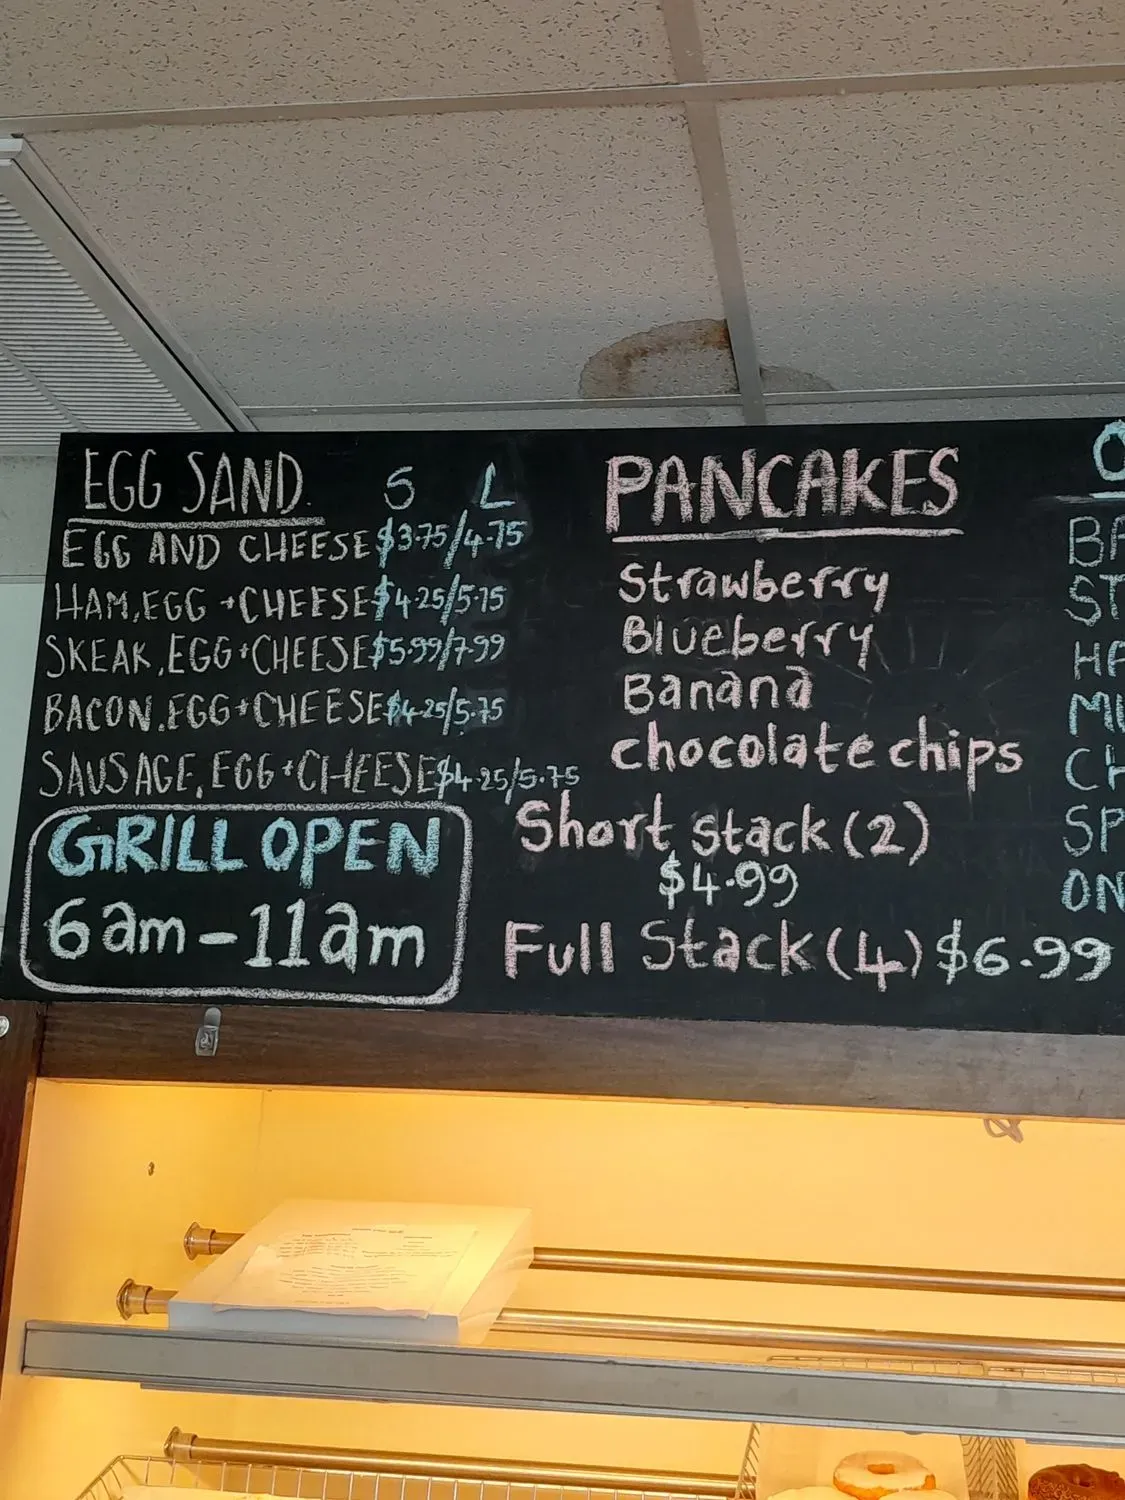 EGG SAND. S L
EGG AND CHEESE $3.75/4.75
HAM, EGG + CHEESE $4.25/5.75
SKEAK, EGG + CHEESE $5.99/7.99
BACON, EGG + CHEESE $4.25/5.75
SAUSAGE, EGG + CHEESE $4.25/5.75
GRILL OPEN
6am - 11am
PANCAKES
Strawberry
Blueberry
Banana
chocolate chips
Short Stack (2)
$4.99
Full Stack (4) $6.99
O
BA
ST
HA
MU
CH
SP
ON